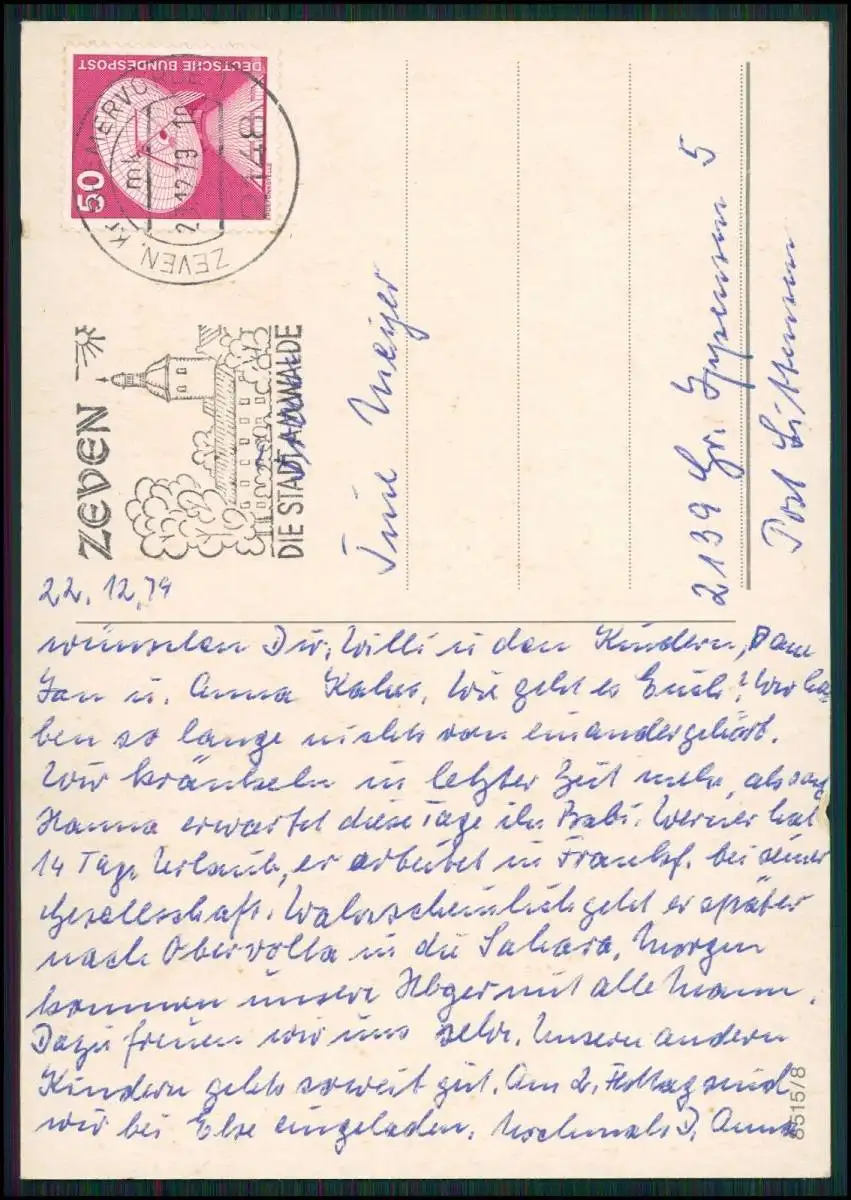 DEUTSCHE BUNDESPOST
50
ZEVEN, Kr. MERVÖRDE
mk
12.79
2148
ZEVEN
DIE STADT AM WALDE
Meyer
2139 Gr. 5
Post Sittensen
22. 12. 79
wünschen Dir, Willi u den Kindern, D
Jan u. Anna Wie geht es Euch? Wir ha-
ben so lange nichts von einander gehört.
Wir kränkeln in letzter Zeit mehr, als
Hanna erwartet diese Tage ihr Babi. Werner hat
14 Tage Urlaub, er arbeitet in Frankf. bei seiner
Gesellschaft. Wahrscheinlich geht er später
nach Obervolta in die Sahara. Morgen
kommen unsere Hbger mit alle Mann.
Dazu freuen wir uns sehr. Unsern andern
Kindern gehts soweit gut. Am 2. Festtag sind
wir bei Else eingeladen. Nochmals D. Anna
8515/8